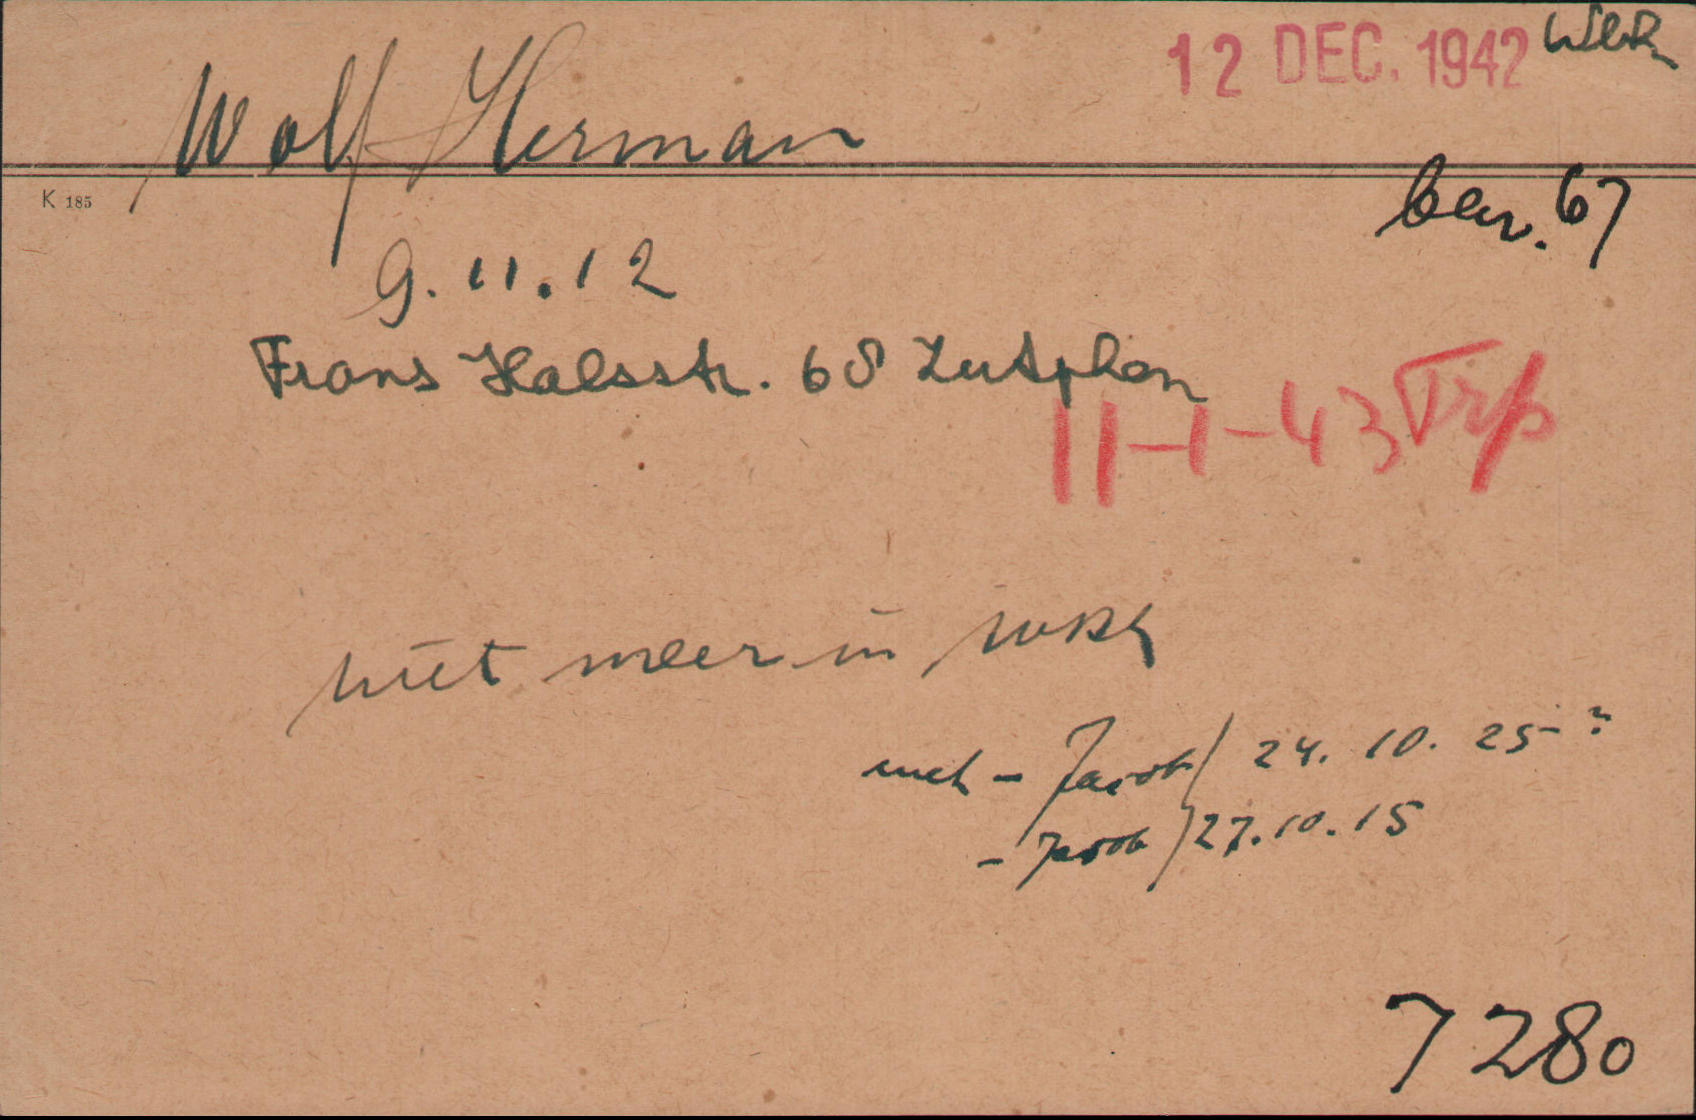 12 DEC. 1942 WBK
Wolf Herman
K 185
bar. 67
9.11.12
Frans Halsstr. 68 Zutphen
11-1-43 Trp
niet meer in WBK
- Jacob / 24. 10. 25 ?
- Jacob / 27.10.15
7280